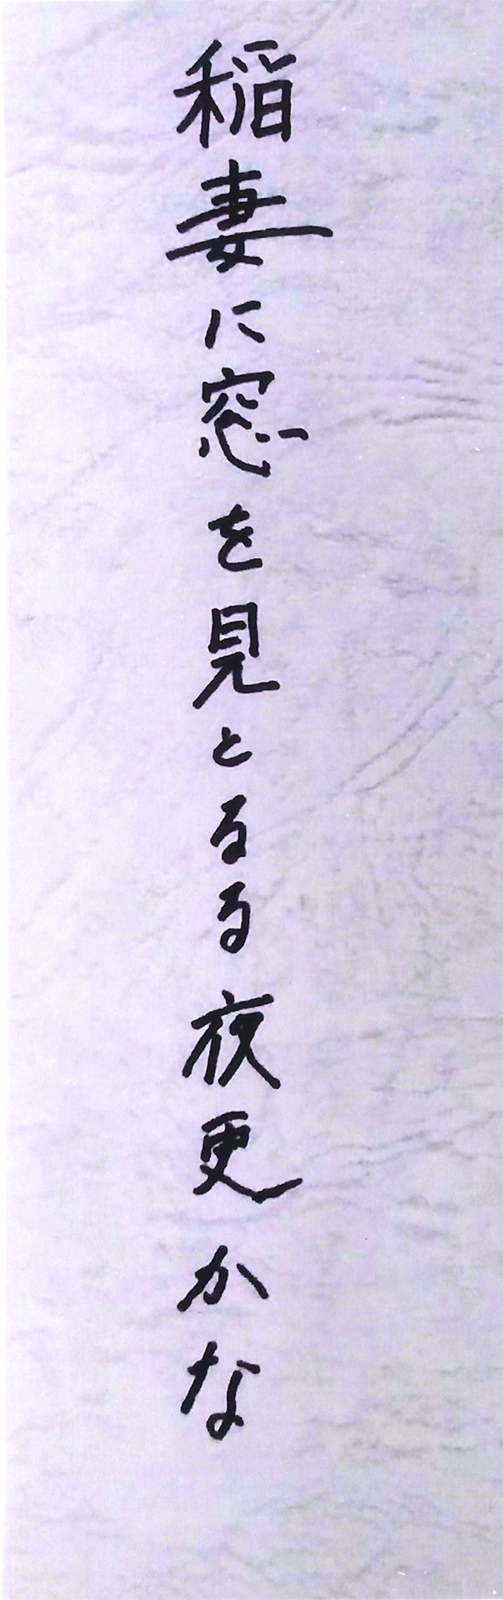 稲妻に窓を見とるる夜更かな